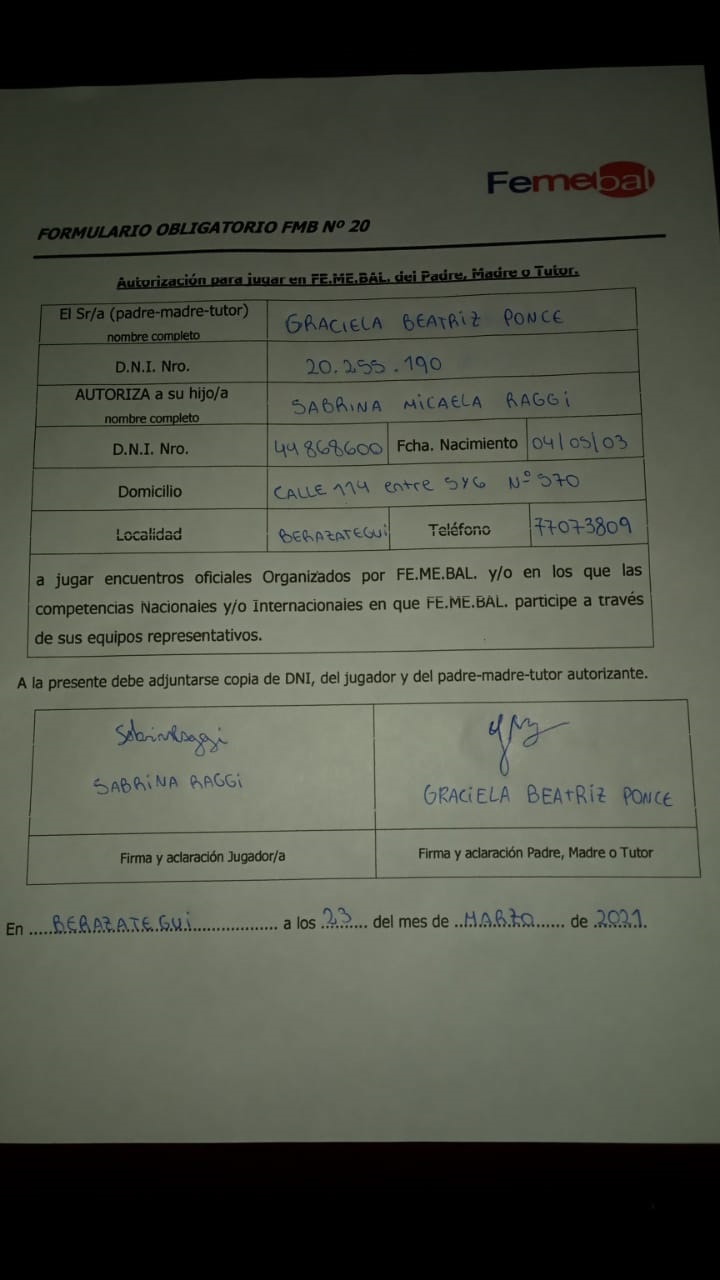 Femebal
FORMULARIO OBLIGATORIO FMB Nº 20
Autorización para jugar en FE.ME.BAL. del Padre, Madre o Tutor.
El Sr/a (padre-madre-tutor)
nombre completo
GRACIELA BEATRIZ PONCE
D.N.I. Nro.
20.255.190
AUTORIZA a su hijo/a
nombre completo
SABRINA MICAELA RAGGI
D.N.I. Nro.
44868600
Fcha. Nacimiento
04/05/03
Domicilio
CALLE 114 entre 5 y 6 Nº 570
Localidad
BERAZATEGUI
Teléfono
77073809
a jugar encuentros oficiales Organizados por FE.ME.BAL. y/o en los que las
competencias Nacionales y/o Internacionales en que FE.ME.BAL. participe a través
de sus equipos representativos.
A la presente debe adjuntarse copia de DNI, del jugador y del padre-madre-tutor autorizante.
SabrinaRaggi
SABRINA RAGGI
GRACIELA BEATRIZ PONCE
Firma y aclaración Jugador/a
Firma y aclaración Padre, Madre o Tutor
En .....BERAZATEGUI.................. a los .23.... del mes de ..MARZO...... de .2021.